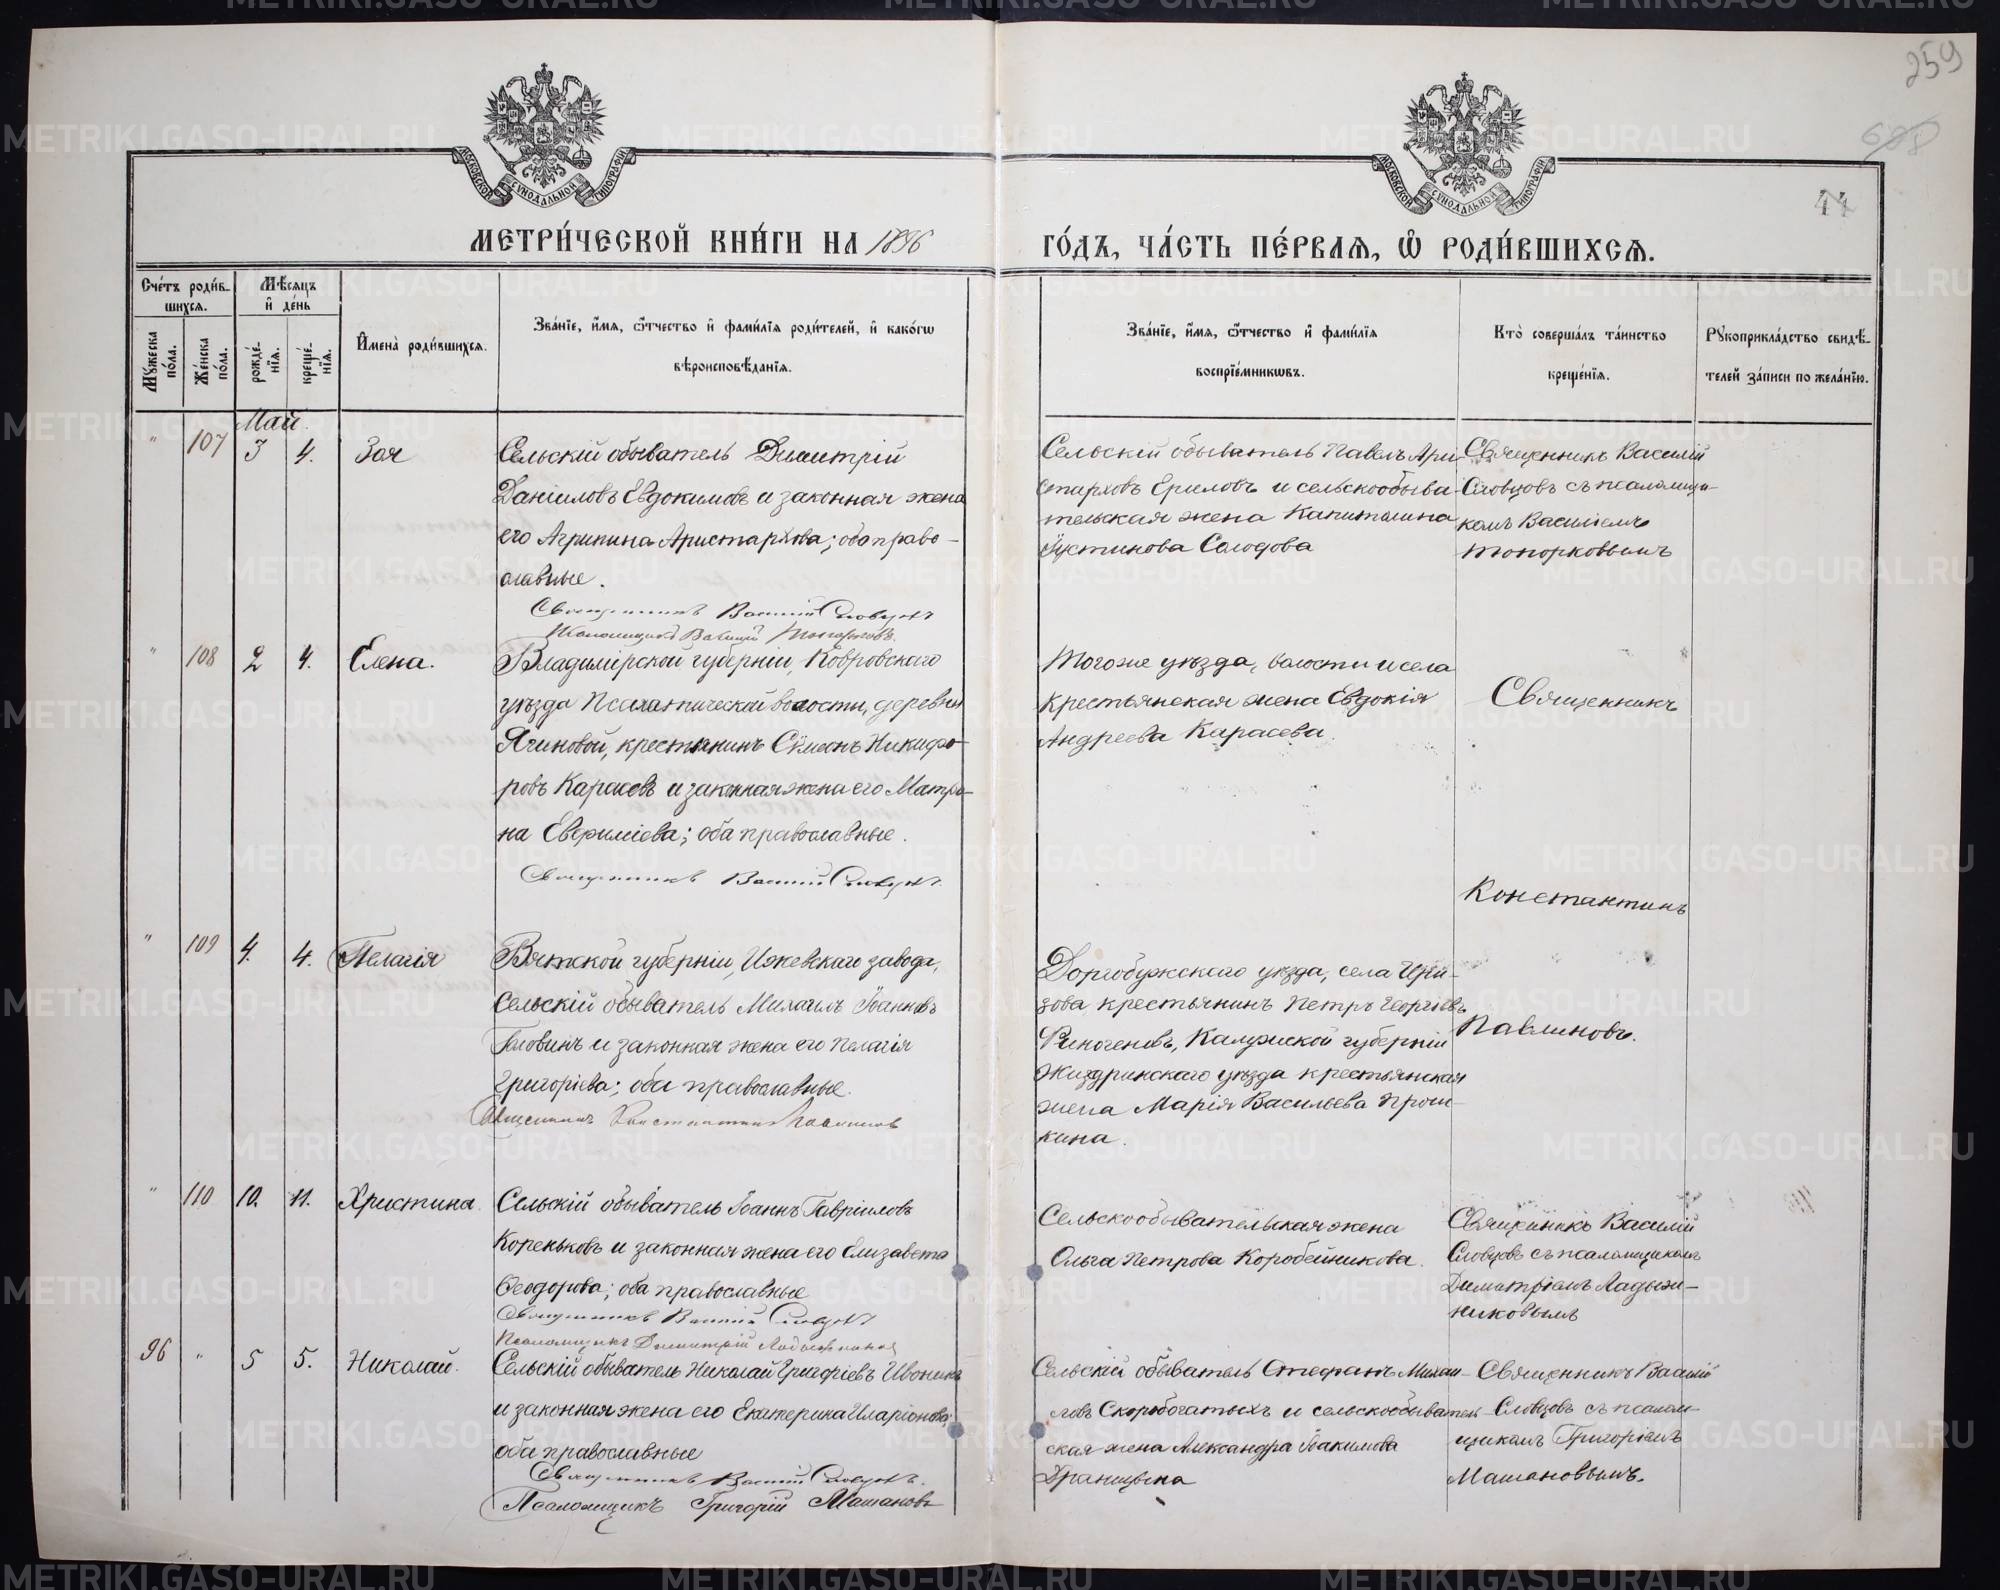 259
698
44
МОСКОВСКОЙ СУНОДАЛЬНОЙ ТИПОГРАФІИ
МОСКОВСКОЙ СУНОДАЛЬНОЙ ТИПОГРАФІИ
МЕТРИ́ЧЕСКОЙ КНИ́ГИ НА 1896
ГО́ДЪ, ЧА́СТЬ ПЕ́РВАЯ, Ѡ҆ РОДИ́ВШИХСЯ.
Сче́тъ роди́в-
шихся.
Мѣ́сяцъ
и҆ де́нь
Мꙋ́жеска по́ла.
Же́нска по́ла.
рожде́-
нїя.
креще́-
нїя.
И҆мена̀ роди́вшихся.
Зва́нїе, и҆́мя, ѻ҆́тчество и҆ фами́лїя роди́телей, и҆ како́гѡ
вѣроисповѣ́данїя.
Зва́нїе, и҆́мя, ѻ҆́тчество и҆ фами́лїя
воспрїе́мникѡвъ.
Кто̀ соверша́лъ та́инство
креще́нїя.
Рꙋкоприкла́дство свидѣ́-
телей за́писи по жела́нїю.
Май.
" 107 3 4. Зоя
Сельскій обыватель Димитрій
Даніиловъ Евдокимовъ и законная жена
его Агрипина Аристархова; оба право-
славные.
Священникъ Василій Словцовъ
Псаломщикъ Василій Топорковъ.
Сельскій обыватель Павелъ Ари-
старховъ Ериловъ и сельскообыва-
тельская жена Капитолина
Іустинова Солодова
Священникъ Василій
Словцовъ съ псаломщи-
комъ Василіемъ
Топорковымъ
" 108 2 4. Елена.
Владимірской губерніи, Ковровскаго
уѣзда волости, деревни
крестьянинъ Сѵмеонъ Никифо-
ровъ Карасевъ и законная жена его Матро-
на Евфиміева; оба православные.
Священникъ Василій Словцовъ.
Тогоже уѣзда, волости и села
крестьянская жена Евдокія
Андреева Карасева.
Священникъ
Константинъ
Павлиновъ.
" 109 4. 4. Пелагія
Вятской губерніи, Ижевскаго завода,
сельскій обыватель Михаилъ Іоанновъ
Головинъ и законная жена его Пелагія
Григоріева; оба православные.
Священникъ Константинъ Павлиновъ
Дорогобужскаго уѣзда, села
крестьянинъ Петръ Георгіевъ
Финогеновъ, Калужской губерніи
Жиздринскаго уѣзда крестьянская
жена Марія Васильева Прош-
кина.
" 110 10. 11. Христина.
Сельскій обыватель Іоаннъ Гавріиловъ
Кореньковъ и законная жена его Елизавета
Ѳеодорова; оба православные
Священникъ Василій Словцовъ
Псаломщикъ Димитрій Ладыжниковъ
Сельскообывательская жена
Ольга Петрова Коробейникова.
Священникъ Василій
Словцовъ съ псаломщикомъ
Димитріемъ Ладыж-
никовымъ
96 " 5 5. Николай.
Сельскій обыватель Николай Григоріевъ Ивонинъ
и законная жена его Екатерина Иларіонова;
оба православные
Священникъ Василій Словцовъ.
Псаломщикъ Григорій Машановъ
Сельскій обыватель Стефанъ Михаи-
ловъ Скоробогатыхъ и сельскообыватель-
ская жена Александра Іоакимова
Священникъ Василій
Словцовъ съ псалом-
щикомъ Григоріемъ
Машановымъ.